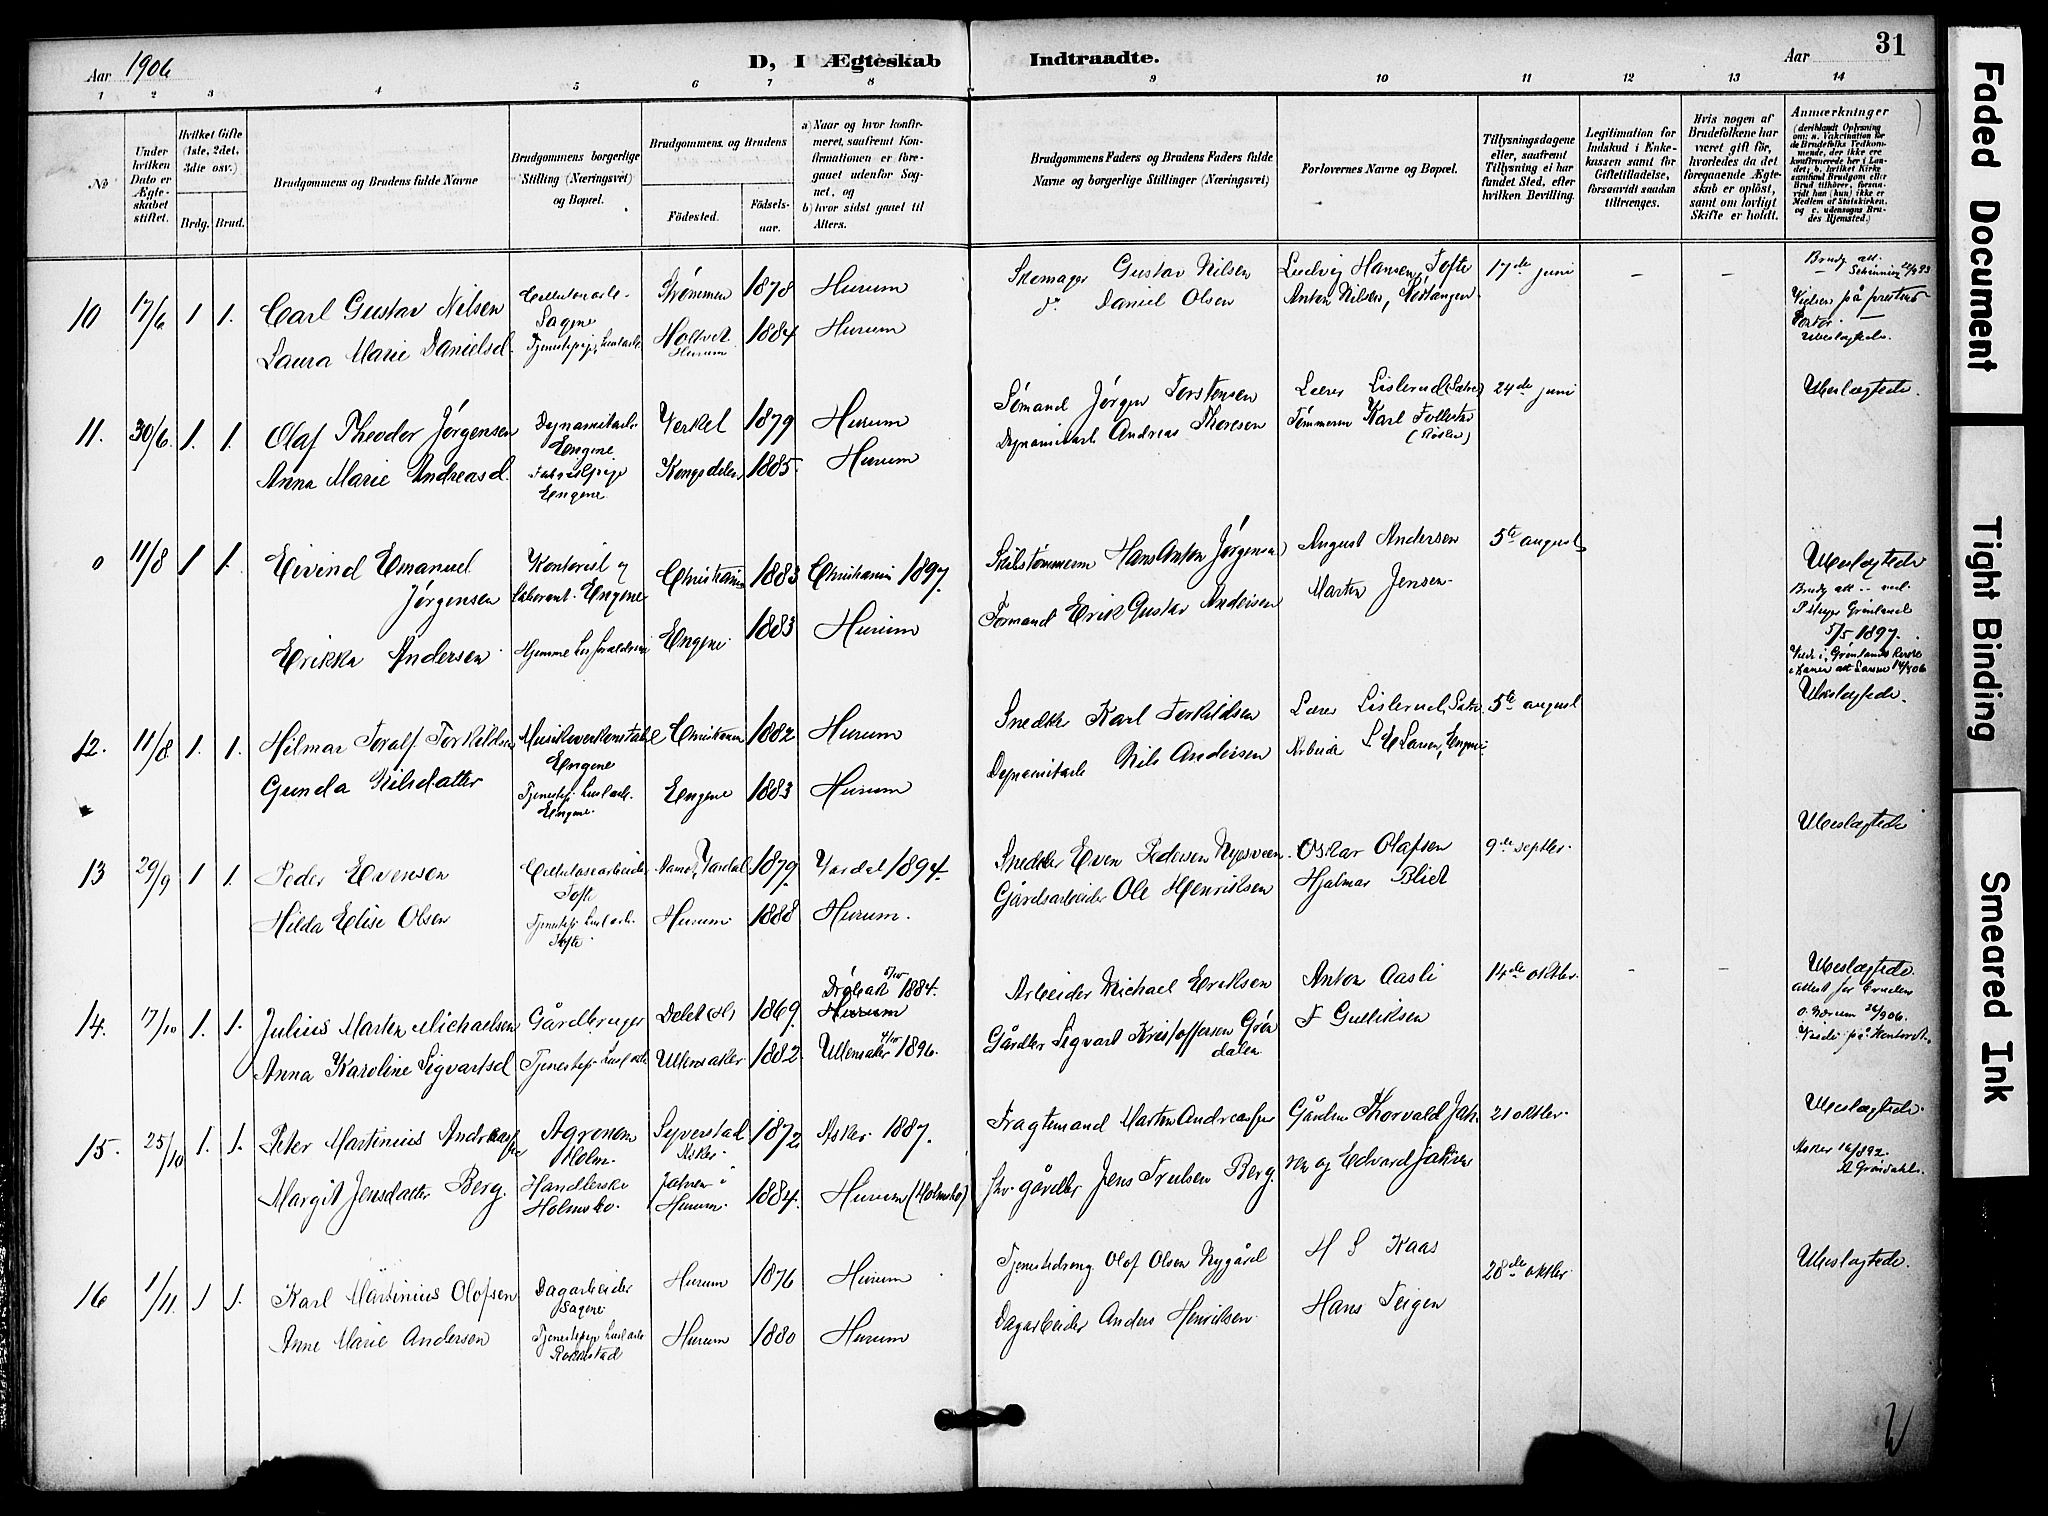 Aar 1906
D, I Ægteskab Indtraadte.
Aar 31
1 2 3 4 5 6 7 8 9 10 11 12 13 14
No
Under hvilken Dato er Ægteskabet stiftet.
Hvilket Gifte (1ste, 2det, 3die osv.)
Brdg. Brud.
Brudgommens og Brudens fulde Navne
Brudgommens borgerlige Stilling (Næringsvei) og Bopæl.
Brudgommens og Brudens
Födested. Födselsaar.
a) Naar og hvor konfirmeret, saafremt Konfirmationen er foregaaet udenfor Sognet, og
b) hvor sidst gaaet til Alters.
Brudgommens Faders og Brudens Faders fulde Navne og borgerlige Stillinger (Næringsvei)
Forlovernes Navne og Bopæl.
Tillysningsdagene eller, saafremt Tillysning ei har fundet Sted, efter hvilken Bevilling.
Legitimation for Indskud i Enkekassen samt for Giftetilladelse, forsaavidt saadan tiltrænges.
Hvis nogen af Brudefolkene har været gift før, hvorledes da det foregaaende Ægteskab er oplöst, samt om lovligt Skifte er holdt.
Anmærkninger
(deriblandt Oplysning om: a. Vakcination for de Brudefolks Vedkommende, der ikke ere konfirmerede her i Landet; b. hvilket Kirkesamfund Brudgom eller Brud tilhører, forsaavidt han (hun) ikke er Medlem af Statskirken, og c. udensogns Brudes Hjemsted.)
10 17/6 1 1. Carl Gustav Nilsen Strömmen 1878 Hurum Skomager Gustav Nilsen Ludvig Hansen, Tofte 17de juni - -
Sagene
Laura Marie Danielsd. Holtvet Hurum 1884 Hurum do Daniel Olsen Anton Nilsen,
Ubeslægtede.
11. 30/6 1. 1. Olaf Theodor Jørgensen Dynamitarb. Engene Verket 1879 Hurum Sömand Jørgen Torstensen Lærer Lislerud, Sætre 24de juni Ubeslægtede.
Anna Marie Andreasd. Fabrikspige Engene Kongsdelen 1885. Hurum Dynamitarb Andreas Thoresen Tömmerm Karl Follestad
0 11/8 1 1. Eivind Emanuel Jørgensen Kontorist og laborant. Engene Christiania 1883 Christiania 1897. Hans Anton Jørgensen August Andersen 5te august Ubeslægtede
Erikka Andersen Hjemme hos foraldrene Engene 1883 Hurum Formand Erik Gustav Andersen Martin Jensen.
5/5 1897.
12. 11/8 1. 1. Hilmar Toralf Torkildsen Engene Christiania 1882 Hurum Snedker Karl Torkildsen Lærer Lislerud, Sætre 5te august Ubeslægtede.
Gunda Nilsdatter Tjenestep. husl arb. Engene. Engene 1883 Hurum Dynamitarb Nils Andersen Arbeider Engene
13 29/9 1 1. Peder Evensen Cellulosearbeider Tofte Vardal 1879 Vardal 1894. Snedker Even Pedersen Oskar Olafsen 9de septbr. Ubeslægtede
Hilda Elise Olsen Tjenestep. husl arb. Tofte. Hurum. 1888 Hurum. Gårdsarbeider Ole Henriksen Hjalmar Blich
14. 17/10 1. 1. Julius Marten Michaelsen Gårdbruger 1869. Drøbak 1884. Hurum Arbeider Michael Eriksen Anton Aasli 14de oktbr. - - Ubeslægtede.
Anna Karoline Sigvartsd Tjenestep. husl arb Ullensaker 1882 Ullensaker 1896. Gårdbr Sigvart Kristoffersen Gröndalen F Gulliksen
15. 25/10 1. 1. Peter Martinius Andreassen Agronom Holm. Syverstad Asker. 1872 Asker 1887. Fragtemand Marten Gårdm Thorvald Jahren og Edvard Jahren 21 oktbr. Ubeslægtede.
Margit Jensdatter Berg. Handlerske Holmsbo. Jahren i Hurum. 1884. Hurum (Holmsbo) gårdbr Jens Trulsen Berg.
16 1/11 1 1. Karl Martinius Olofsen Dagarbeider Sagene Hurum 1876 Hurum Tjenestedreng Olof Olsen Nygård H S Kaas 28de oktbr. Ubeslægtede.
Anne Marie Andersen Tjenestepige husl arb Rokkestad Hurum 1880 Hurum Dagarbeider Anders Henriksen. Hans Teigen
Faded Document
Tight Binding
Smeared Ink